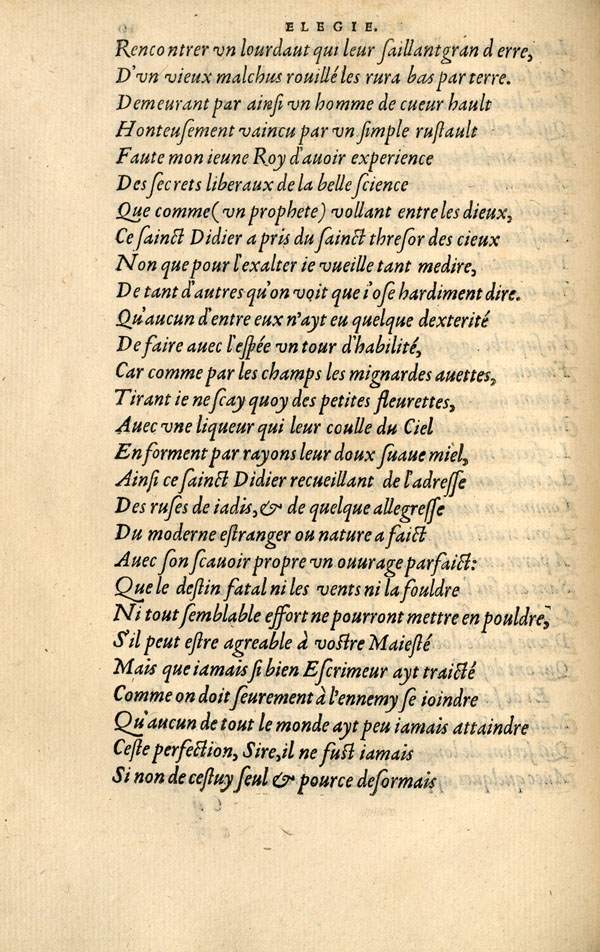 ELEGIE.
Rencontrer vn lourdaut qui leur ſaillant gran d erre,
D'vn vieux malchus rouillé les rura bas par terre.
Demeurant par ainſi vn homme de cueur hault
Honteuſement vaincu par vn ſimple ruſtault
Faute mon ieune Roy d'auoir experience
Des ſecrets liberaux de la belle ſcience
Que comme (vn prophete) vollant entre les dieux,
Ce ſainct Didier a pris du ſainct threſor des cieux
Non que pour l'exalter ie vueille tant medire,
De tant d'autres qu'on voit que i'oſe hardiment dire.
Qu'aucun d'entre eux n'ayt eu quelque dexterité
De faire auec l'eſpée vn tour d'habilité,
Car comme par les champs les mignardes auettes,
Tirant ie ne ſcay quoy des petites fleurettes,
Auec vne liqueur qui leur coulle du Ciel
En forment par rayons leur doux ſuaue miel,
Ainſi ce ſainct Didier recueillant de l'adreſſe
Des ruſes de iadis, & de quelque allegreſſe
Du moderne eſtranger ou nature a faict
Auec ſon ſcauoir propre vn ouurage parfaict:
Que le deſtin fatal ni les vents ni la fouldre
Ni tout ſemblable effort ne pourront mettre en pouldre,
S'il peut eſtre agreable à voſtre Maieſté
Mais que iamais ſi bien Eſcrimeur ayt traicté
Comme on doit ſeurement à l'ennemy ſe ioindre
Qu'aucun de tout le monde ayt peu iamais attaindre
Ceſte perfection, Sire, il ne fuſt iamais
Si non de ceſtuy ſeul & pource deſormais